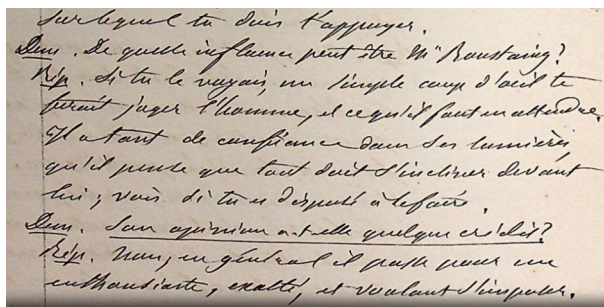 sur lequel tu dois t'appuyer.
Dem. De quelle influence peut être Mr Roustaing?
Rép. Si tu le voyais un simple coup d'œil te
ferait juger l'homme, et ce qu'il faut en attendre.
Il a tant de confiance dans ses lumières,
qu'il pense que tout doit s'incliner devant
lui; vois si tu es disposé à le faire.
Dem. Son opinion a-t-elle quelque crédit?
Rép. Non, en général il passe pour un
enthousiaste, exalté, et voulant s'imposer.